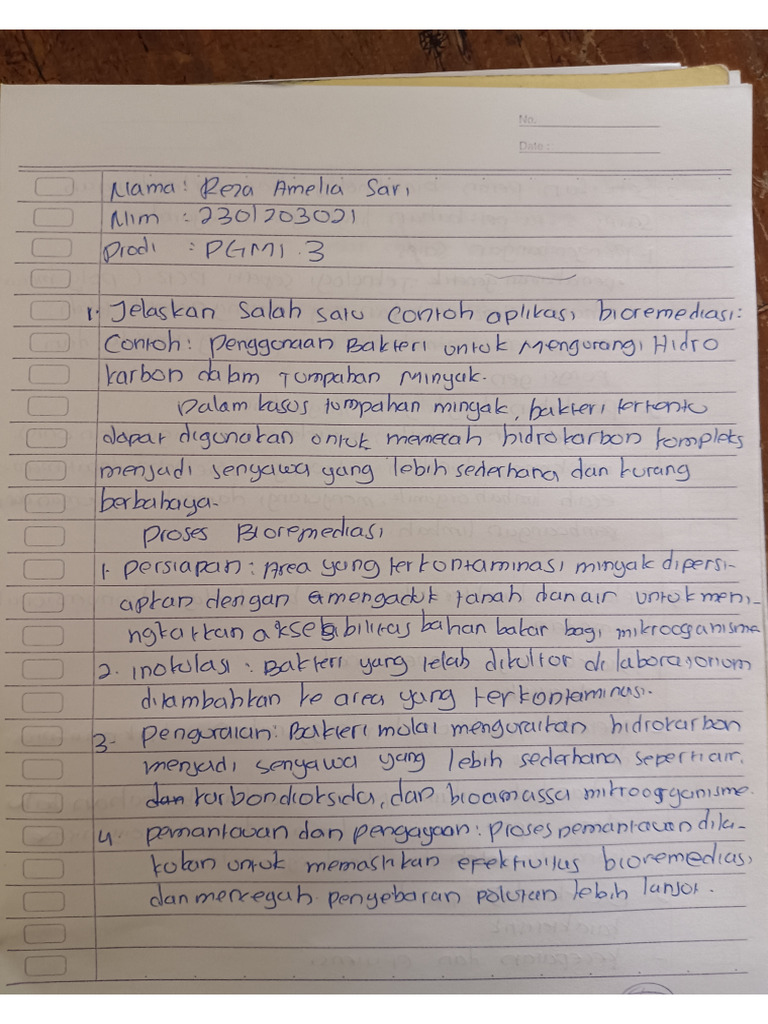 No.
Date :
Nama : Reza Amelia Sari
Nim : 2301203021
Prodi : PGMI 3
1. Jelaskan Salah satu contoh aplikasi bioremediasi:
Contoh : Penggunaan Bakteri untuk Mengurangi Hidro
karbon dalam Tumpahan Minyak.
Dalam kasus tumpahan minyak, bakteri tertentu
dapat digunakan untuk memecah hidrokarbon kompleks
menjadi senyawa yang lebih sederhana dan kurang
berbahaya.
Proses Bioremediasi
1. Persiapan : Area yang terkontaminasi minyak dipersi-
apkan dengan mengaduk tanah dan air untuk meni-
ngkatkan aksesibilitas bahan bakar bagi mikroorganisme
2. inokulasi : Bakteri yang telah dikultur di laboratorium
ditambahkan ke area yang terkontaminasi.
3. Penguraian : Bakteri mulai menguraikan hidrokarbon
menjadi senyawa yang lebih sederhana seperti air,
dan karbondioksida, dan bioamassa mikroorganisme.
4. pemantauan dan pengayaan : proses pemantauan dila-
kukan untuk memastikan efektivitas bioremediasi
dan mencegah penyebaran polutan lebih lanjut.